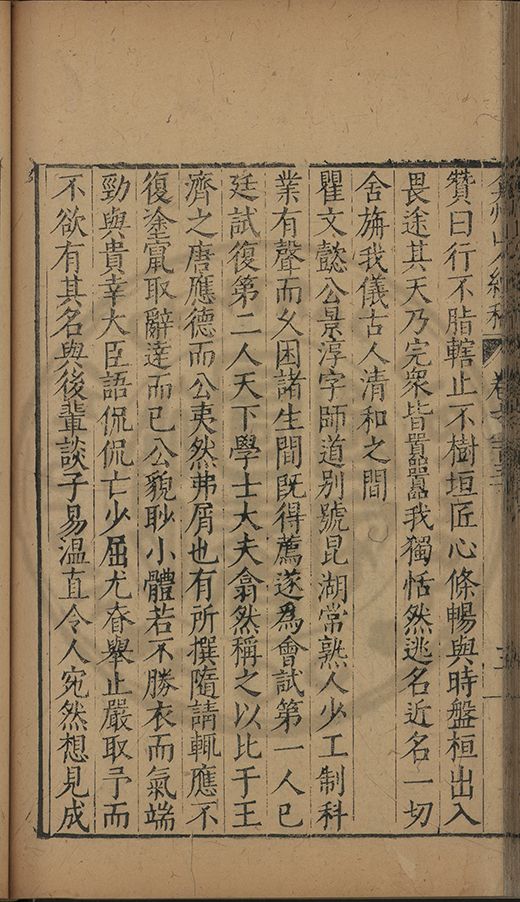 弇州山人續稿 卷之一百五十
贊曰行不脂轄止不樹垣匠心條暢與時盤桓出入
畏途其天乃完衆皆囂囂我獨恬然逃名近名一切
舍旃我儀古人清和之間
瞿文懿公景淳字師道別號昆湖常熟人少工制科
業有聲而久困諸生間既得薦遂爲會試第一人已
廷試復第二人天下學士大夫翕然稱之以比于王
濟之唐應德而公夷然弗屑也有所撰隋請輒應不
復塗竄取辭達而已公貌眇小體若不勝衣而氣端
勁與貴幸大臣語侃侃亡少屈尤眘舉止嚴取予而
不欲有其名與後輩談子易溫直令人宛然想見成